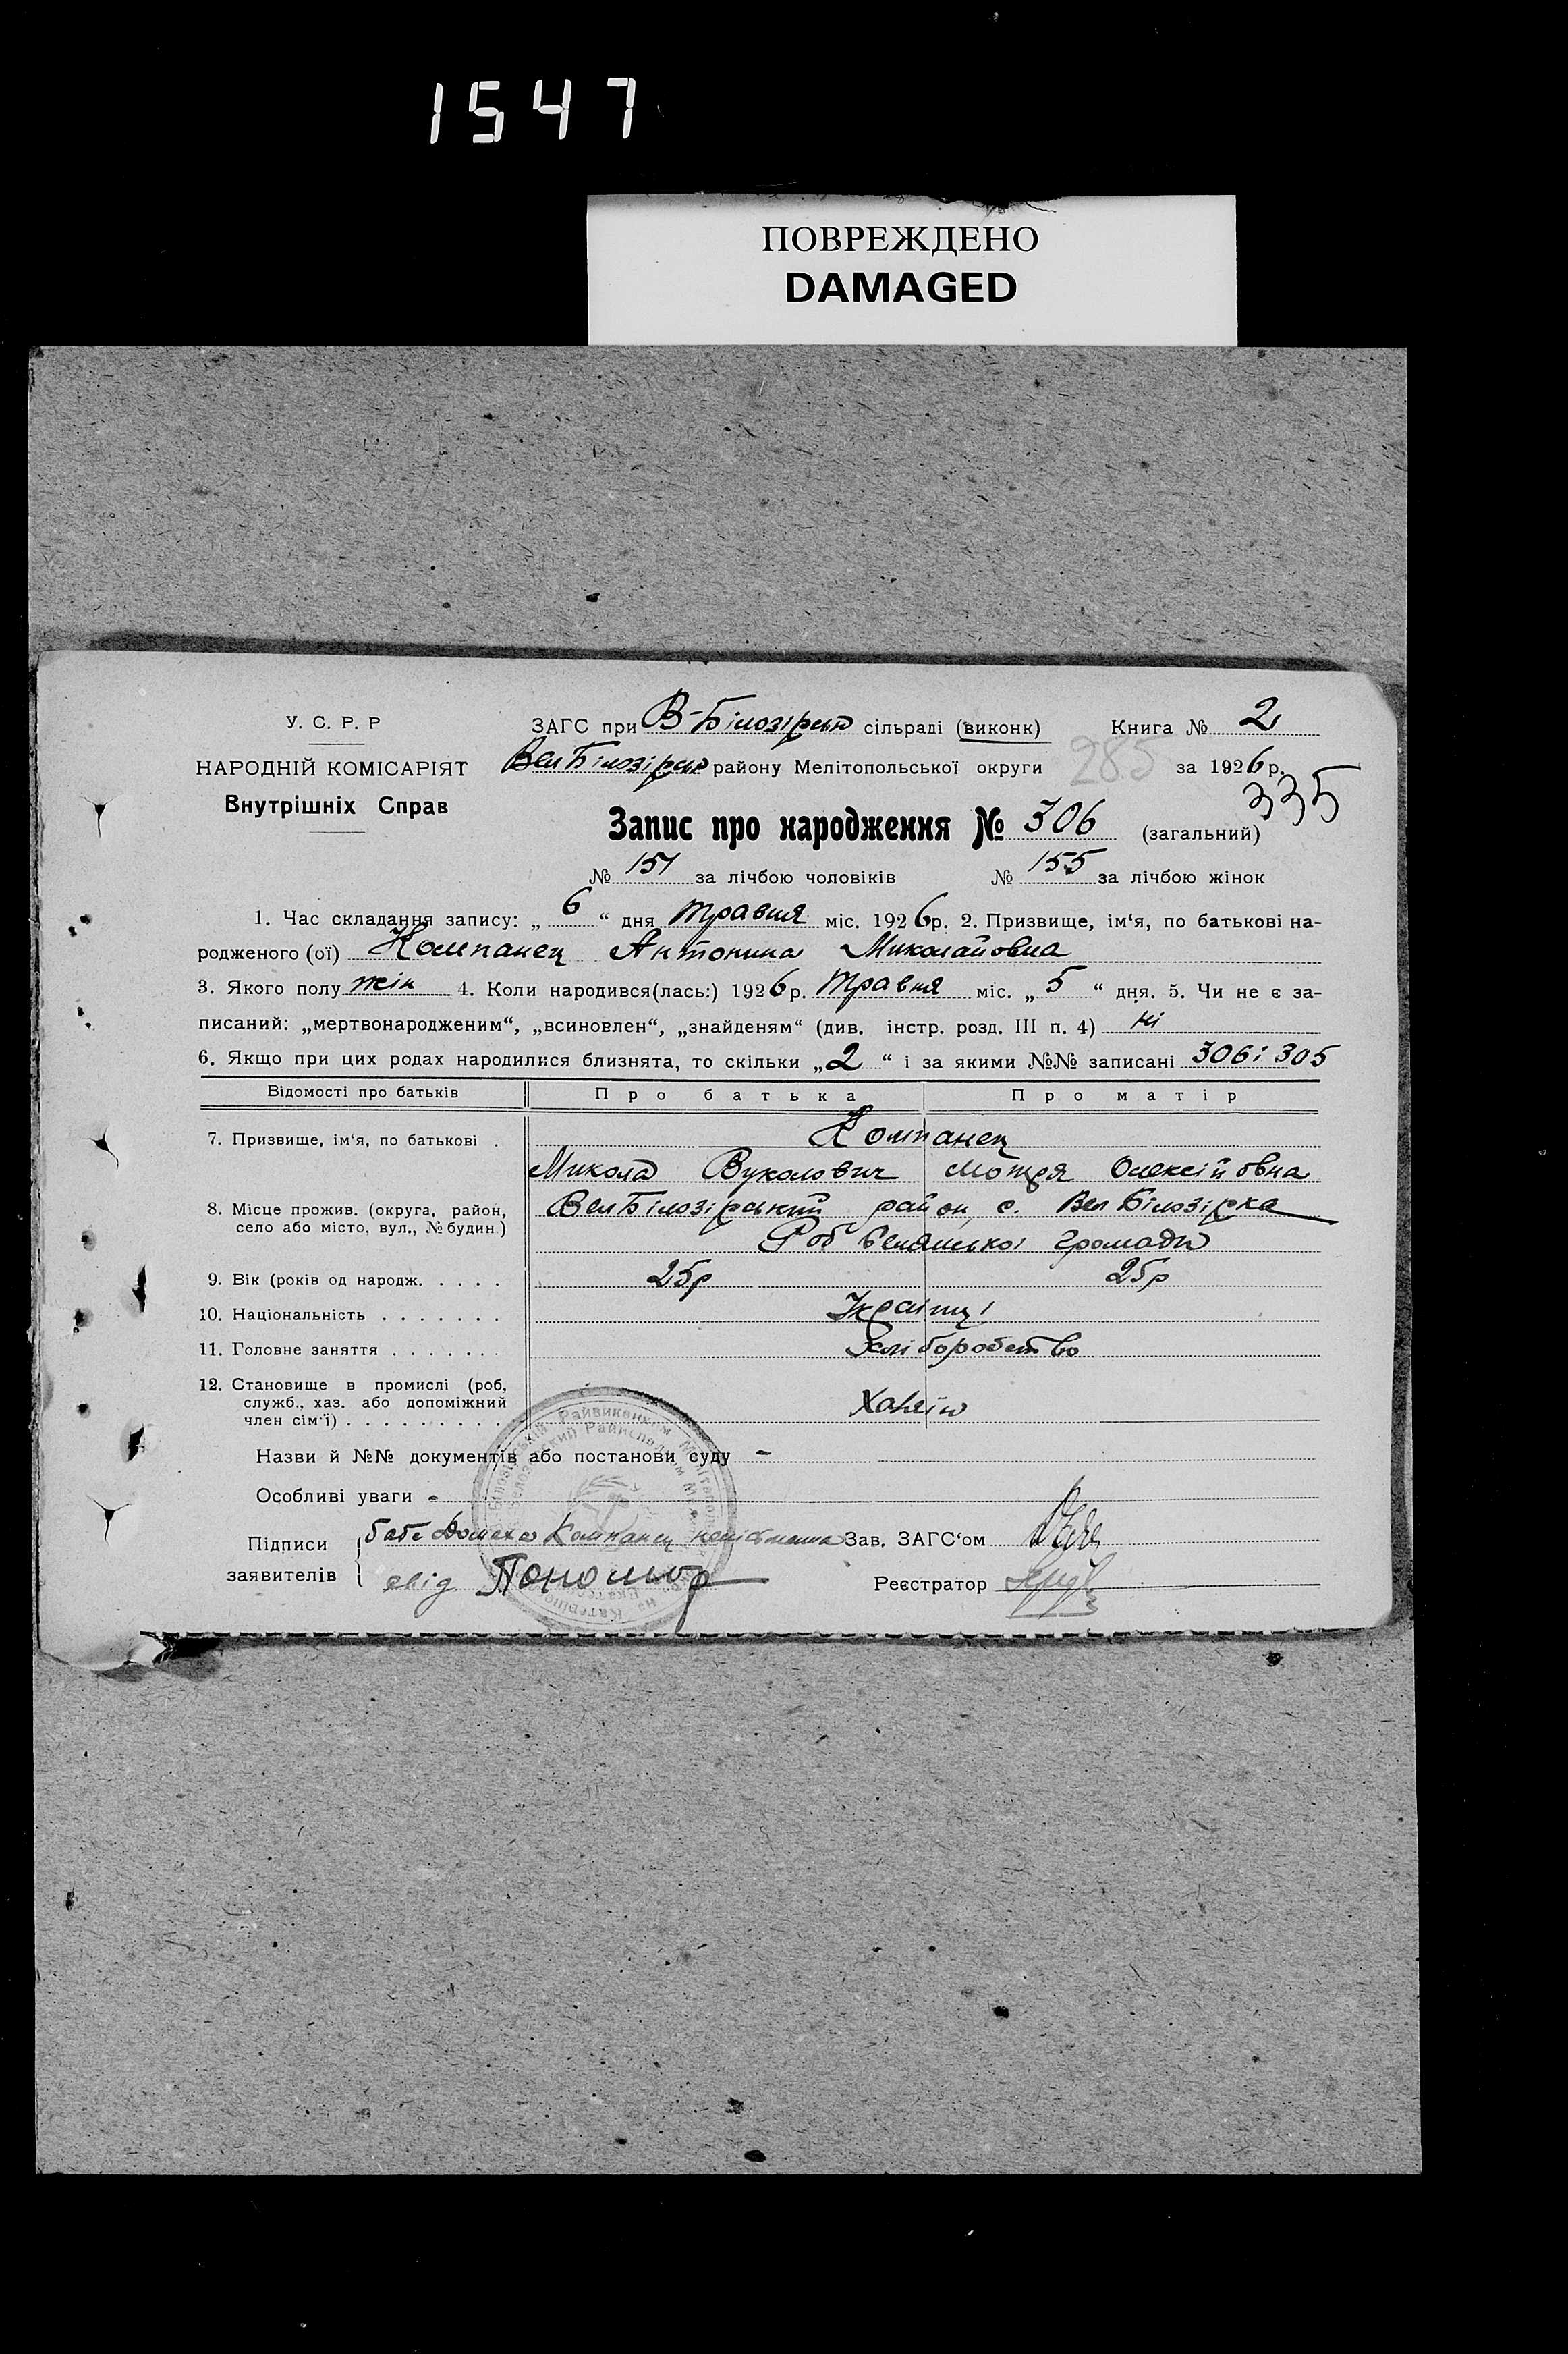 1547
ПОВРЕЖДЕНО
DAMAGED
У. С. Р. Р
НАРОДНІЙ КОМІСАРІЯТ
Внутрішніх Справ
ЗАГС при В-Білозірськ сільраді (виконк) Книга № 2
Вел Білозірськ району Мелітопольської округи 285 за 1926 р.
335
Запис про народження № 306 (загальний)
№ 151 за лічбою чоловіків № 155 за лічбою жінок
1. Час складання запису: „ 6 “ дня травня міс. 1926р. 2. Призвище, ім‘я, по батькові на-
родженого (ої) Компанец Антонина Миколайовна
3. Якого полу жін 4. Коли народився(лась:) 1926 р. травня міс. „ 5 “ дня. 5. Чи не є за-
писаний: „мертвонародженим“, „всиновлен“, „знайденям“ (див. інстр. розд. III п. 4) ні
6. Якщо при цих родах народилися близнята, то скільки „2 “ і за якими №№ записані 306 і 305
Відомості про батьків Про батька Про матір
7. Призвище, ім‘я, по батькові . Компанец
Микола Вуколович Мотря Олексійовна
8. Місце прожив. (округа, район, село або місто, вул., № будин.) Вел Білозірський район, с. Вел Білозірка
громади
9. Вік (років од народж. . . . . 25р 25р
10. Національність . . . . . . . Українці
11. Головне заняття . . . . . . . Хліборобство
12. Становище в промислі (роб,
служб., хаз. або допоміжний
член сім‘ї) . . . . . . . . . Хазяїн
Назви й №№ документів або постанови суду -
Особливі уваги -
Підписи баба Домаха Компанец неписьменна Зав. ЗАГС‘ом
заявителів свід Пономар Реєстратор